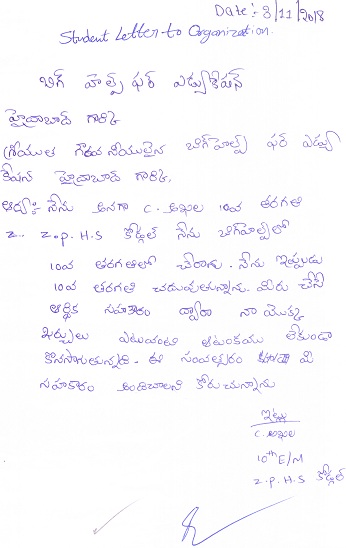 Date :- 8/11/2018
Student Letter to Organization.
బిగ్ హెల్ప్ ఫర్ ఎడ్యుకేషన్
హైదరాబాద్ గారికి
గౌరవనీయులైన బిగ్ హెల్ప్ ఫర్ ఎడ్యు
కేషన్ హైదరాబాద్ గారికి,
నేను అనగా C. అఖిల 10వ తరగతి
Z.P.H.S నేను బిగ్ హెల్ప్ లో
10వ తరగతిలో చేరాను. నేను ఇప్పుడు
10వ తరగతి చదువుతున్నాను. మీరు చేసే
ఆర్థిక సహకారం ద్వారా నా యొక్క
ఖర్చులు ఎటువంటి ఆటంకము లేకుండా
కొనసాగుతున్నవి. ఈ సంవత్సరం కూడా మీ
సహకారం ఉండాలని కోరుచున్నాను
ఇట్లు
C. అఖిల
10th E/M
Z.P.H.S